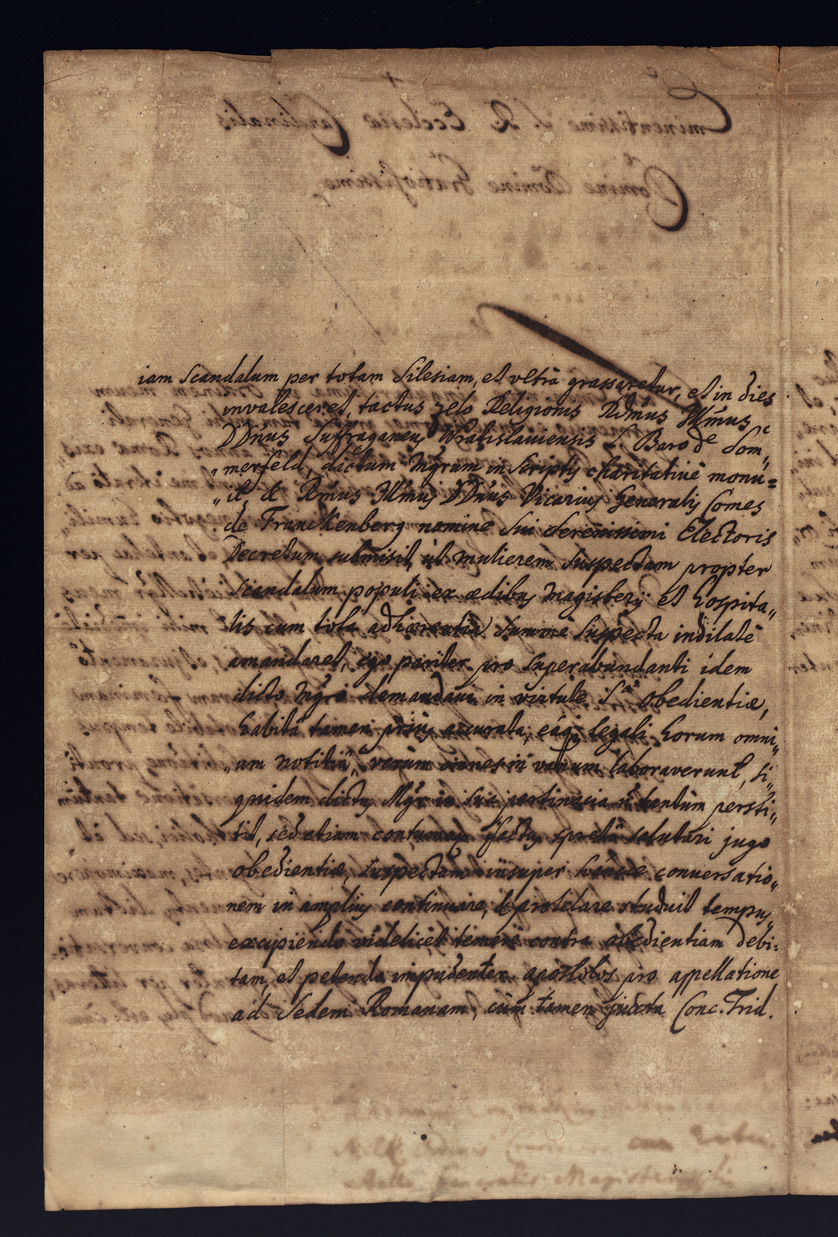 iam scandalum per totam Silesiam, et ultra grassaretur, et in dies
invalesceret, tactus zelo Religionis Rd̄mus Ill̄mus
DD̄nus Suffraganeus Wratislaviensis L. Baro de Som„
„merfeld, dictum Mgrum in scriptis charitativè monu=
„it et Rm̄us Ill̄mus DD̄nus Vicarius Generalis Comes
de Franckenberg nomine sui Serenissimi Electoris
Decretum submisit, ut mulierem suspectam propter
scandalum populi ex ædibus Magisterij et hospita„
lis cum tota adhærentia summè suspecta indilatè
amandaret, ego pariter pro superabundanti idem
dicto Mgro demandavi in virtute S.æ obedientiæ,
habitâ tamen prius accurata, eaq. legali horum omni„
„am notitiâ, verùm omnes in vanum laboraverunt, si„
quidem dictus Mgr in sua pertinacia non tantùm persti„
tit, sed etiam contumax factus spretô salutari jugo
obedientiæ, suspectam insuper conversatio„
nem in amplius continuare, et protelare studuit tempus,
excipiendo videlicet temerè contra obedientiam debi=
tam, et petendo impudenter apostolos pro appellatione
ad Sedem Romanam, cùm tamen juxta Conc. Trid.